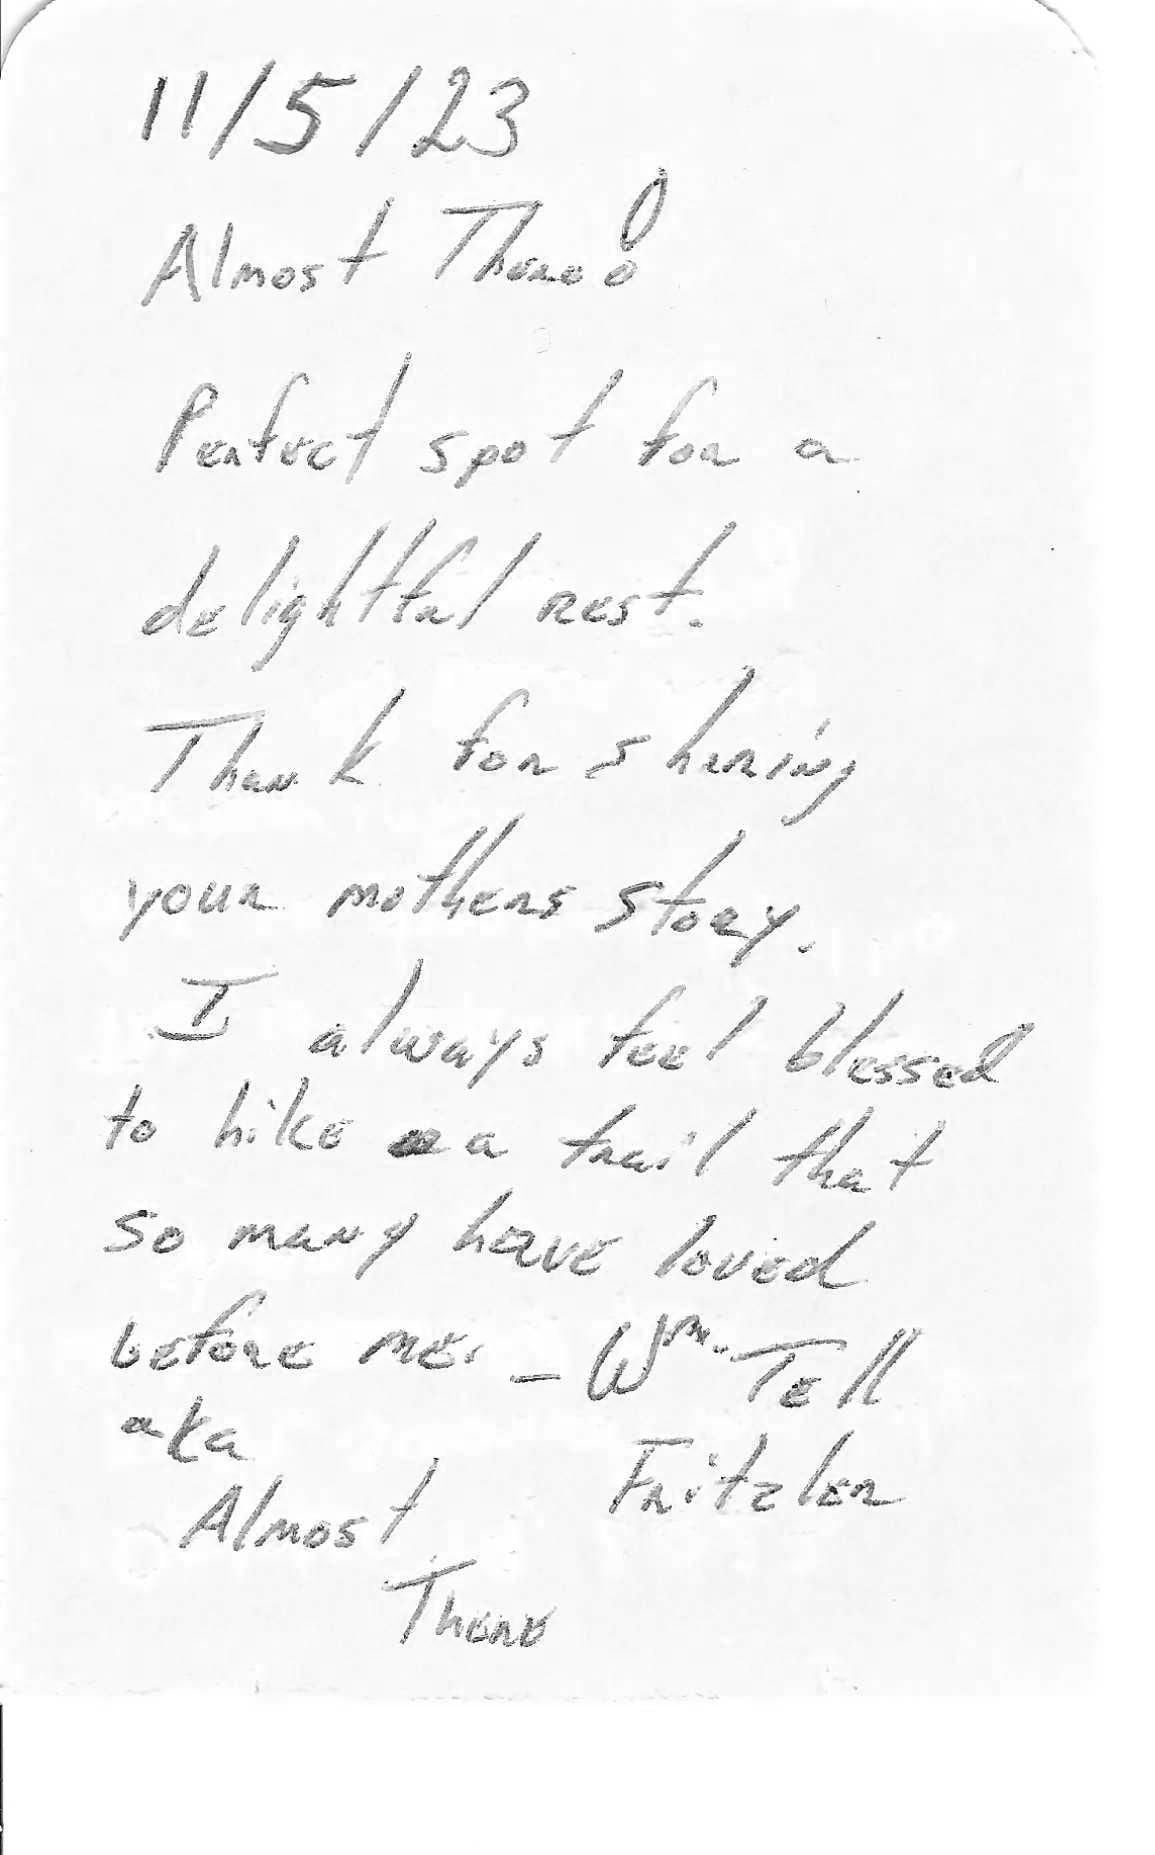 11/5/23
Almost There!
Perfect spot for a
delightful rest.
Thank for sharing
your mothers story.
I always feel blessed
to hike a trail that
so many have loved
before me. - Wm. Tell
aka Fritzler
Almost
There